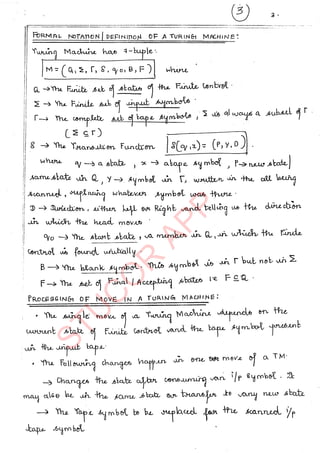 3
2.
FORMAL NOTATION | DEFINITION OF A TURING MACHINE:
Turing Machine has 7-tuple:
M = (Q, Σ, Γ, δ, q0, B, F) where
Q → The Finite set of states of the Finite Control.
Σ → The Finite set of input symbols.
Γ → The complete set of tape symbols, Σ is always a subset of Γ
(Σ ⊆ Γ)
δ → The Transition Function δ(q,x) = (P,Y,D)
where q → a state, x → a tape symbol, P → new state/
same state in Q, Y → symbol in Γ, written in the cell being
scanned, replacing whatever symbol was there.
D → Direction, either left or Right and telling us the direction
in which the head moves
q0 → The start state, a member in Q, in which the finite
control is found initially
B → The blank symbol. This symbol is in Γ but not in Σ
F → The set of Final | Accepting states ie F ⊆ Q
PROCESSING OF MOVE IN A TURING MACHINE:
• The single move of a Turing Machine depends on the
current state of Finite Control and the tape symbol present
in the input tape.
• The Following changes happen in one move of a TM.
→ Changes the state after consuming an i/p symbol. It
may also be in the same state or transfer to any new state
→ The Tape symbol to be replaced for the scanned i/p
tape symbol.